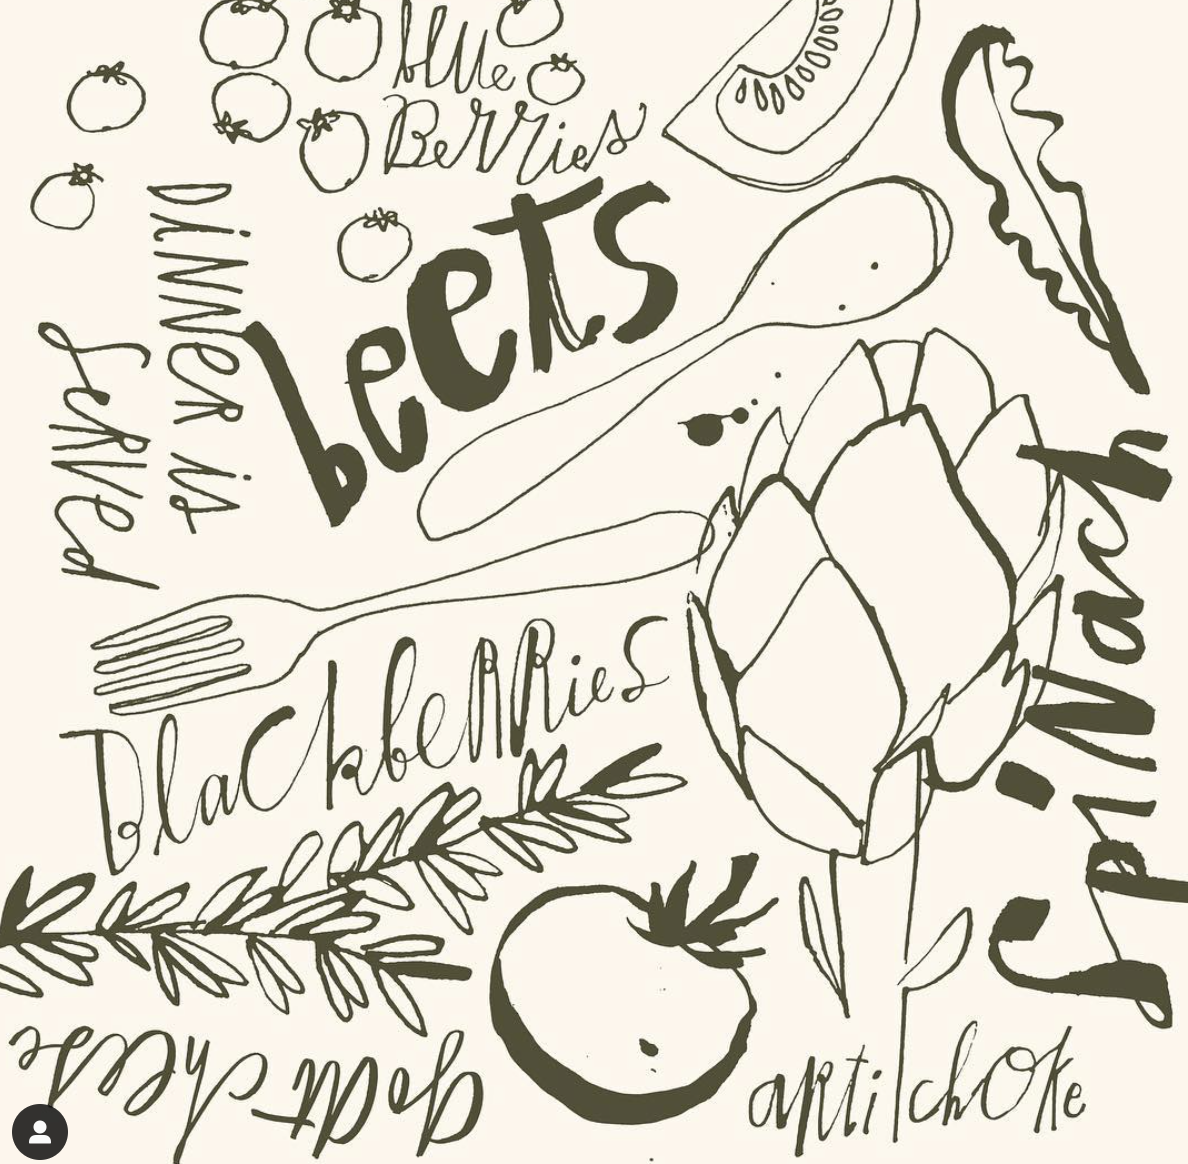 blue
Berries
beets
DiNNeR is
SeRVed
BlaCkbeRRies
SpiNach
goat cheese
aRtichoke